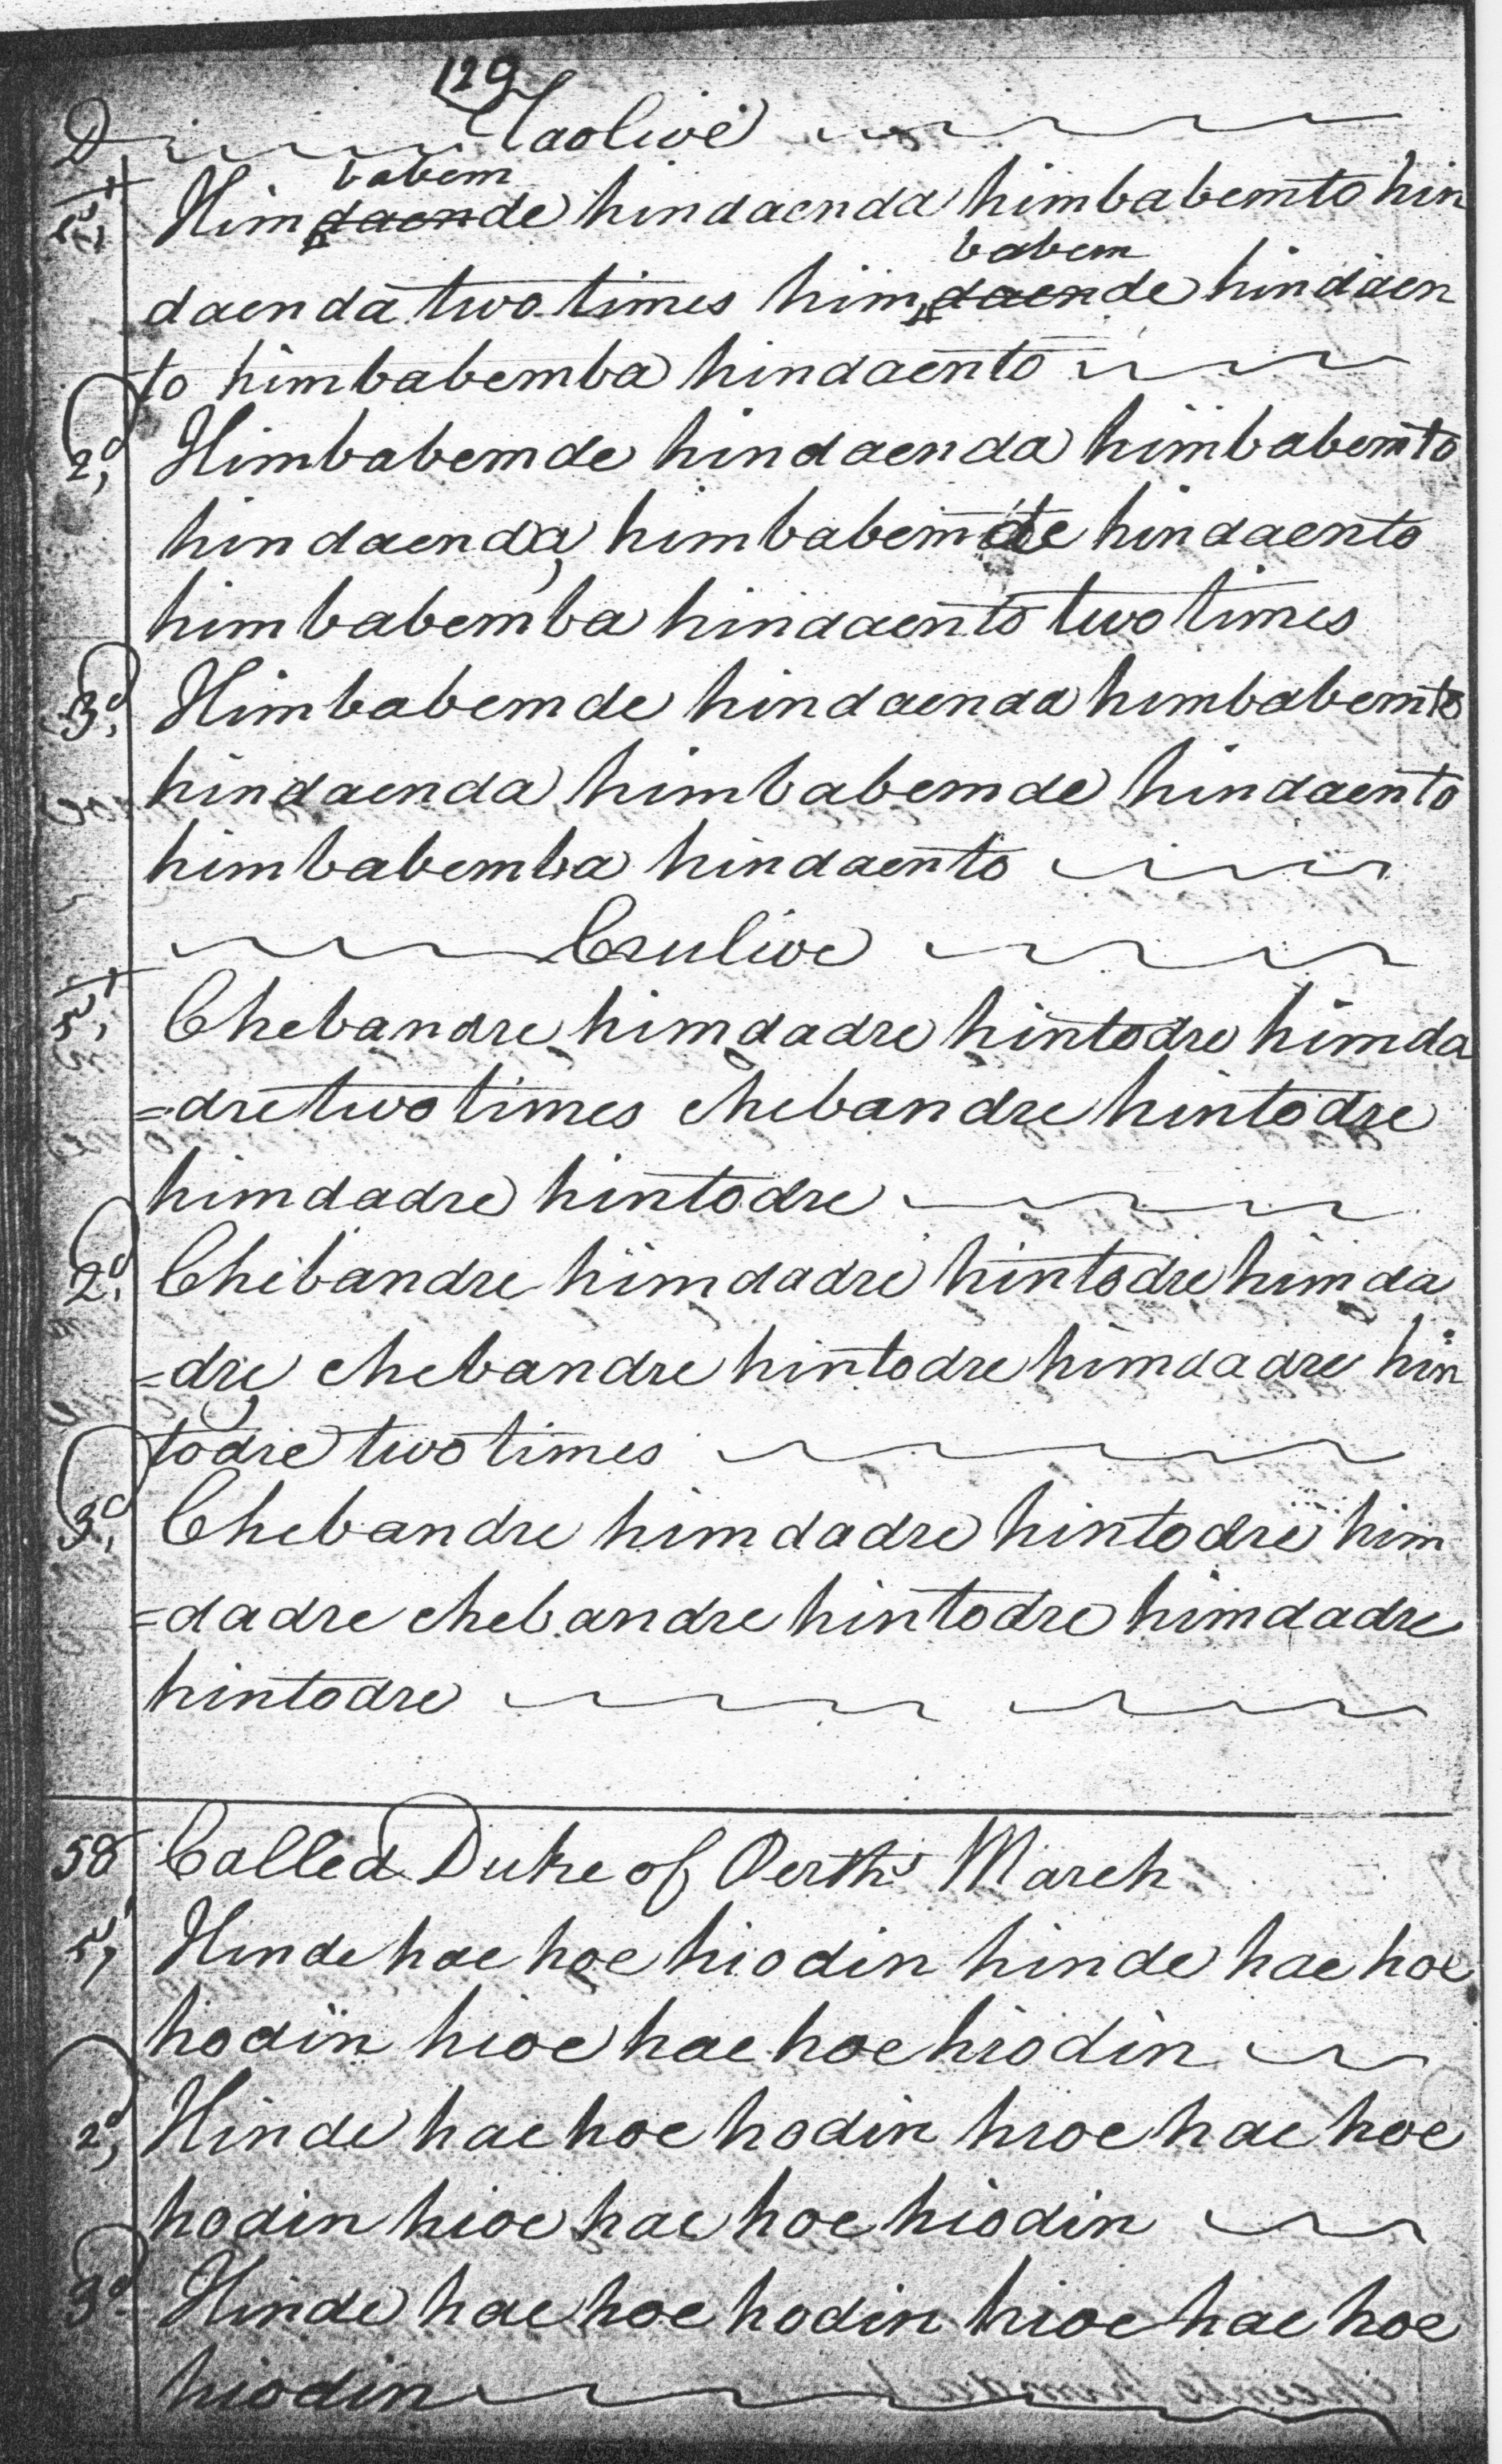 129
D Taolive
1st Him daende babem hindaenda himbabemto hin
daenda two times him daende babem hindaen
to himbabemba hindaento
2d, Himbabemde hindaenda himbabemto
hindaenda, himbabemde hindaento
himbabemba hindaento two times
3d, Himbabemde hindaenda himbabemto
hindaenda himbabemde hindaento
himbabemba hindaento
Crulive
1st, Chebandre himdadre hintodre himda
=dre two times chebandre hintodre
himdadre hintodre
2d, Chebandre himdadre hintodre himda
=dre, chebandre hintodre himdadre hin
todre two times
3d, Chebandre himdadre hintodre him
=dadre chebandre hintodre himdadre
hintodre
58 Called Duke of Perth's March
1, Hinde hae hoe hiodin hinde hae hoe
hodin hioe hae hoe hiodin
2d, Hinde hae hoe hodin hioe hae hoe
hodin hioe hae hoe hiodin
3d Hinde hae hoe hodin hioe hae hoe
hiodin